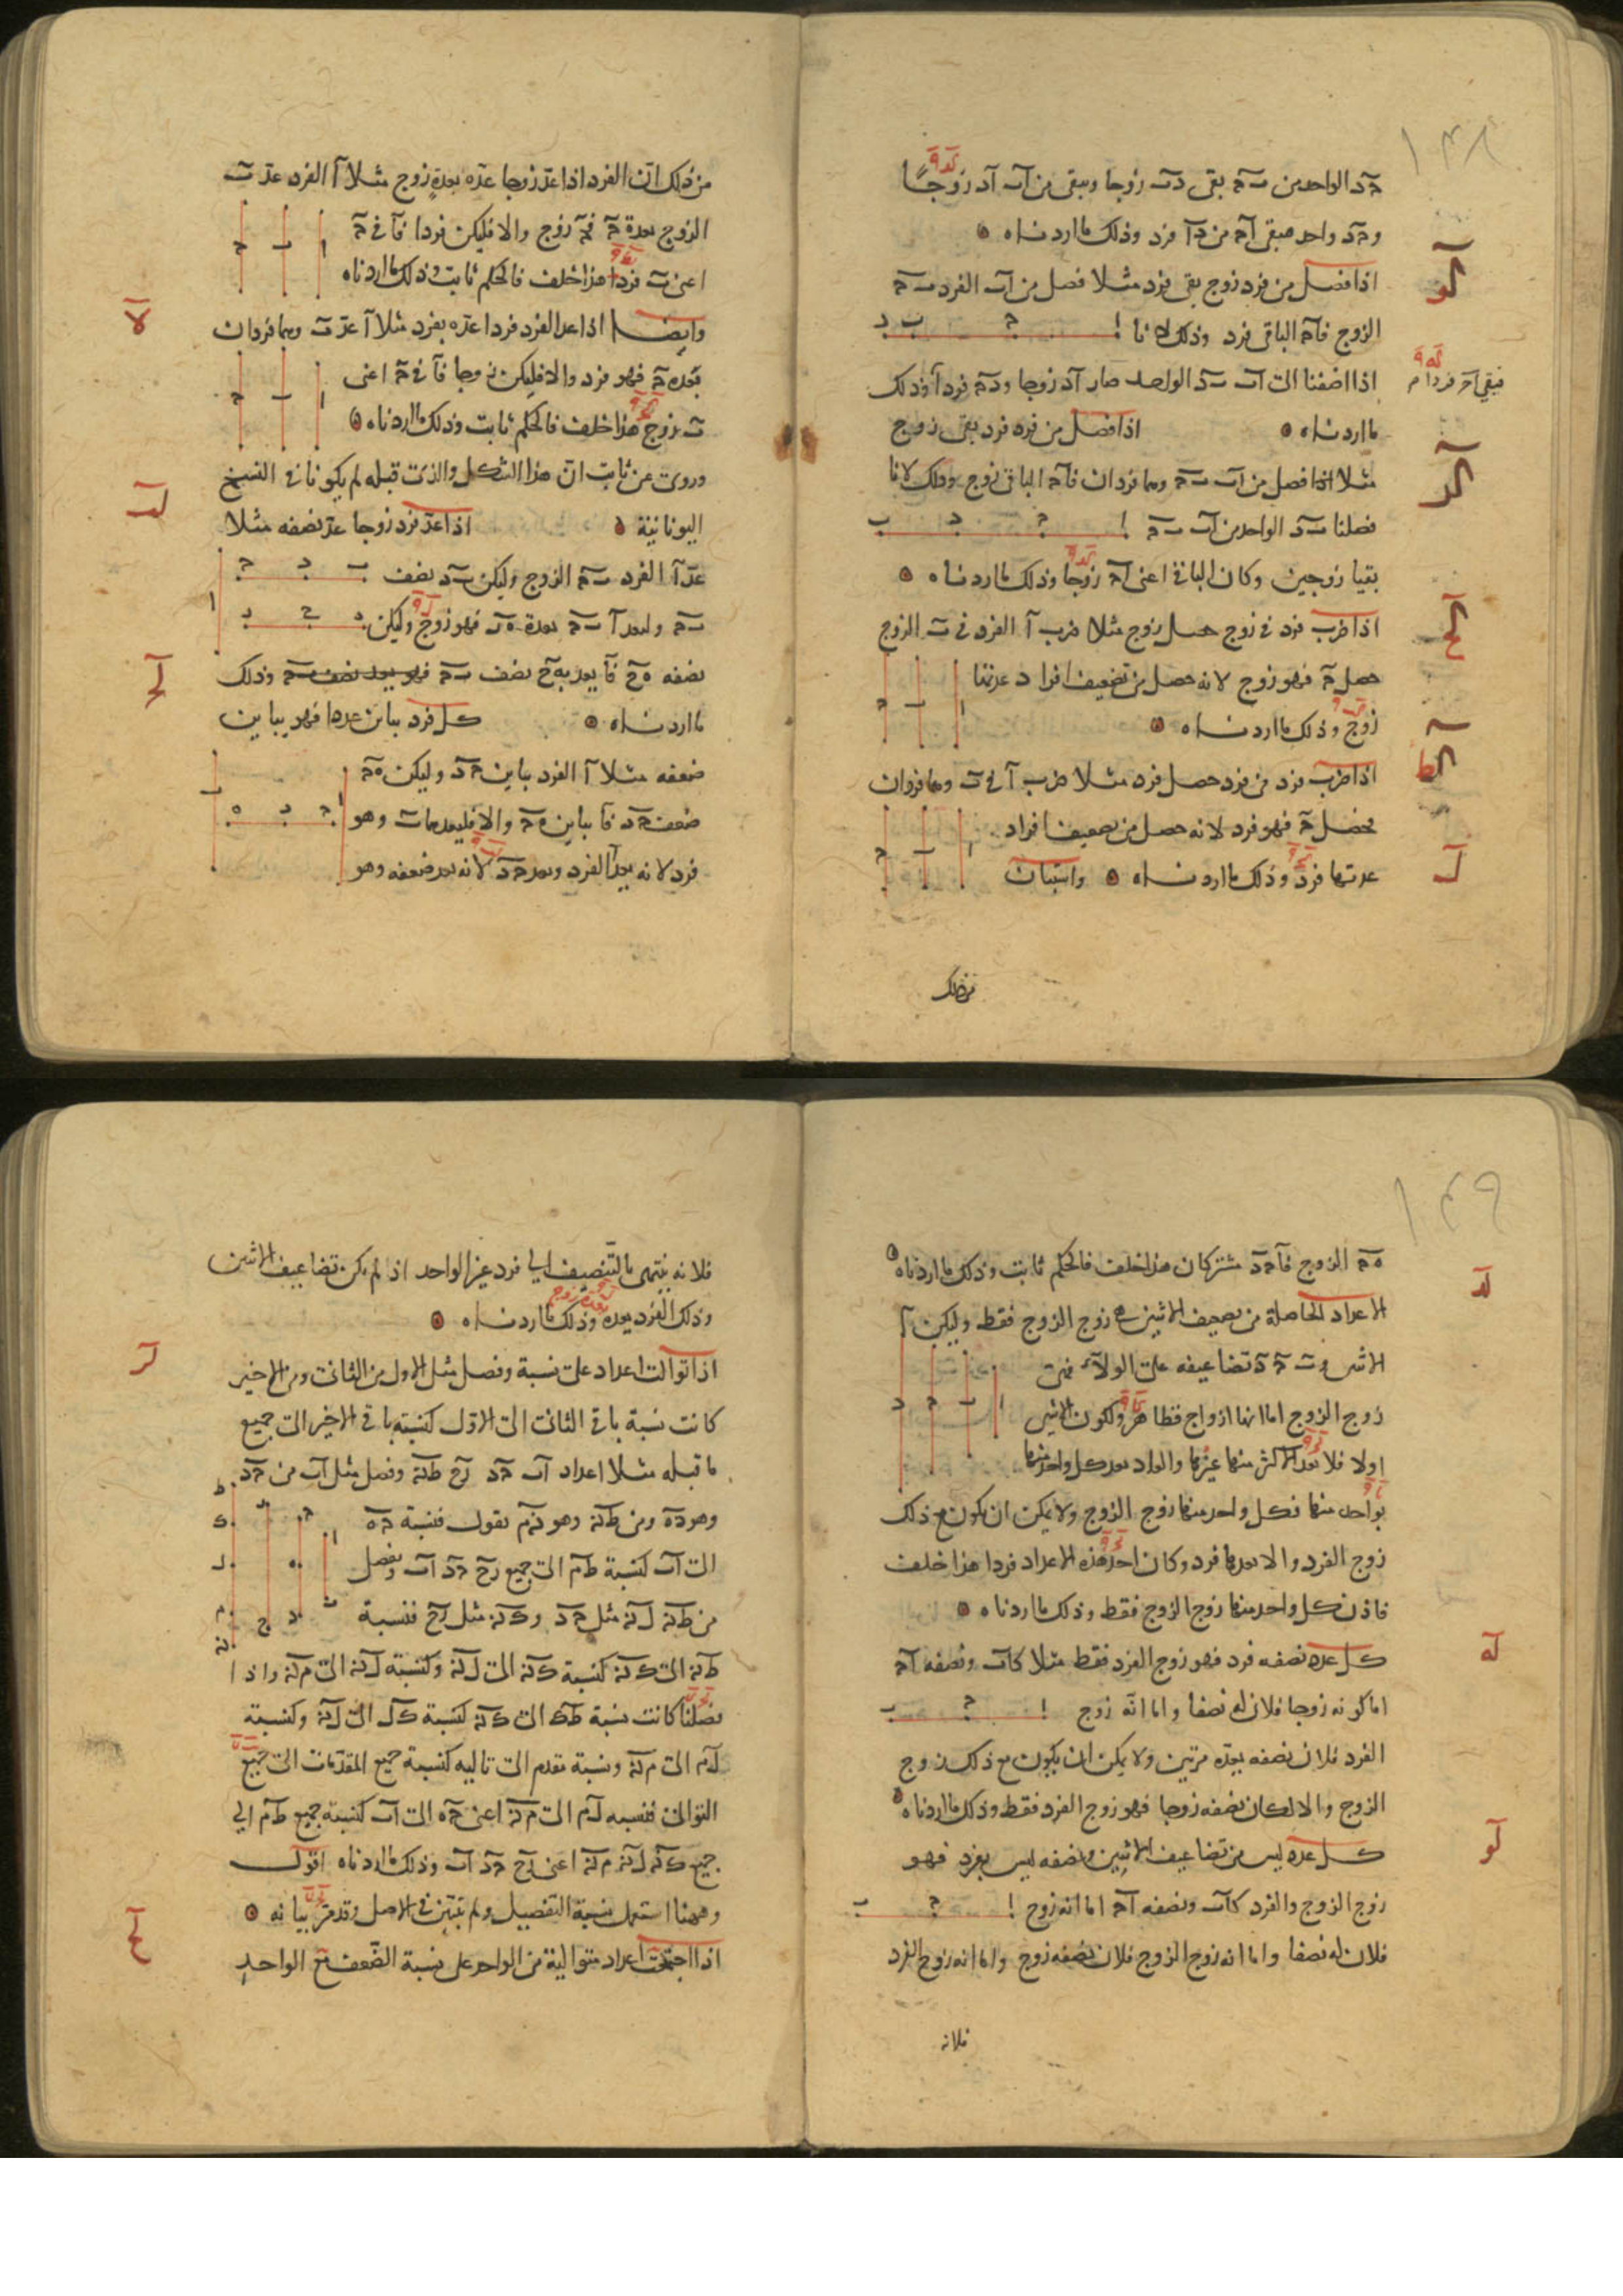 ١٣٨
حَـد الواحد من بـح بقى دب زوجا وبقى من اب اد زوجًا
وحد واحد فبقى اح من دا فرد وذلك ما اردناه
اذا فصل من فرد زوج بقى فرد مثلا فصل من اب الفرد بح
الزوج فاح الباقى فرد وذلك لانا
اذا اضفنا الى اب بد الواحد صار اد زوجا ودح فردا وذلك
فبقى اح فردا
ما اردناه اذا فصل من فرد فرد بقى زوج
مثلا اذا فصل من اب بح وهما فردان فاح الباقى زوج وذلك لانا
فصلنا بد الواحد من اب بح
بقيا زوجين وكان الباقى اعنى اح زوجا وذلك ما اردناه
اذا ضرب فرد فى زوج حصل زوج مثلا ضرب ا الفرد فى ب الزوج
حصل ح فهو زوج لانه حصل من تضعيف افراد عدتها
زوج وذلك ما اردناه
اذا ضرب فرد فى فرد حصل فرد مثلا ضرب ا فى ب وهما فردان
يحصل ح فهو فرد لانه حصل من تضعيف افراد
عدتها فرد وذلك ما اردناه واستبان
من ذلك
كو
كز
كح
كط
ل
من ذلك ان الفرد اذا عد زوجا عده بعدة زوج مثلا ا الفرد عد ب
الزوج بعدة ح فح زوج والا فليكن فردا فا فى ح
اعنى ب فردا هذا خلف فالحكم ثابت وذلك ما اردناه
وايضا اذا عد الفرد فردا عده بفرد مثلا ا عد ب وهما فردان
بعده ح فهو فرد والا فليكن زوجا فا فى ح اعنى
ب زوج هذا خلف فالحكم ثابت وذلك ما اردناه
وروى عن ثابت ان هذا الشكل والذى قبله لم يكونا فى النسخ
اليونانية اذا عد فرد زوجا عد نصفه مثلا
عد ا الفرد بح الزوج وليكن بد نصف
بح وليعد ا بح بعدة ه‍ر فهو زوج وليكن
نصفه ه‍ح فا يعد به‍ح نصف بح فهو يعد نصف بح وذلك
ما اردناه كل فرد يباين عددا فهو يباين
ضعفه مثلا ا الفرد يباين حد وليكن ه‍ح
ضعف حد فا يباين ه‍ح والا فليعدهما ب وهو
فرد لانه يعد ا الفرد ويعد حد لانه يعد ضعفه وهو
لا
لب
لج
١٣٩
ه‍ح الزوج فا حد مشتركان هذا خلف فالحكم ثابت وذلك ما اردناه
الاعداد الحاصلة من تضعيف الاثنين هى زوج الزوج فقط وليكن ا
الاثنين و ب ح د تضاعيفه على الولاء فهى
زوج الزوج اما انها ازواج فظاهر ولكون الاثنين
اولا فلا يعد الاكثر منها غيرها والواحد يعد كل واحد منها
بواحد منها فكل واحد منها زوج الزوج ولا يمكن ان يكون مع ذلك
زوج الفرد والا لعدها فرد وكان احد هذه الاعداد فردا هذا خلف
فاذن كل واحد منها زوج الزوج فقط وذلك ما اردناه
كل عدد نصفه فرد فهو زوج الفرد فقط مثلا كاب ونصفه اح
اما كونه زوجا فلان له نصفا واما انه زوج
الفرد فلان نصفه يعده مرتين ولا يمكن ان يكون مع ذلك زوج
الزوج والا لكان نصفه زوجا فهو زوج الفرد فقط وذلك ما اردناه
كل عدد ليس من تضاعيف الاثنين ونصفه ليس بفرد فهو
زوج الزوج والفرد كاب ونصفه اح اما انه زوج
فلان له نصفا واما انه زوج الزوج فلان نصفه زوج واما انه زوج الفرد
فلانه
لد
له
لو
فلانه ينتهى بالتنصيف الى فرد غير الواحد اذ لم يكن تضاعيف الاثنين
وذلك الفرد يعده وذلك ما اردناه
بعدة زوج
اذا توالت اعداد على نسبة وفصل مثل الاول من الثانى ومن الاخير
كانت نسبة باقى الثانى الى الاول كنسبة باقى الاخير الى جميع
ما قبله مثلا اعداد اب حد رح طنه وفصل مثل اب من حد
وهو ده ومن طنه وهو نه‍م نقول فنسبة حه
الى اب كنسبة طم الى جميع رح حد اب ونفصل
من طنه لنه مثل حد وكنه مثل رح فنسبة
طنه الى كنه كنسبة كنه الى لنه وكنسبة لنه الى منه واذا
فصلنا كانت نسبة طك الى كنه كنسبة كل الى لنه وكنسبة
لم الى منه ونسبة مقدم الى تاليه كنسبة جميع المقدمات الى جميع
التوالى فنسبه لم الى منه اعنى حه الى اب كنسبة جميع طم الى
جميع كنه لنه منه اعنى رح حد اب وذلك ما اردناه اقول
وههنا استعمل نسبة التفصيل ولم تتبين فى الاصل وقد مر بيانه
اذا اجتمعت اعداد متوالية من الواحد على نسبة الضعف مع الواحد
لز
لح